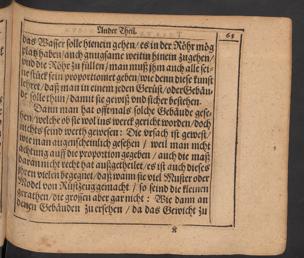 Ander Theil. 63
das Wasser solle hienein gehen / es in der Röhr mög
platz haben / auch gnugsame weittin hinein zugehen /
und die Röhr zu füllen / man muß jhm auch alle sei-
ne stück sein proportioniert geben / wie denn diese kunst
lehret / daß man in einem jeden Gerüst / oder Gebäu-
de solle thun / damit sie gewiß und sicher bestehen.
Dann man hat offtmals solche Gebäude gese-
hen / welche ob sie wol ins werck gericht worden / doch
nichts seind werth gewesen: Die ursach ist gewest /
wie man augenscheinlich gesehen / weil man nicht
achtung auff die proportion gegeben / auch die maß
daran nicht recht hat außgetheilet / es ist auch dieses
jhren vielen begegnet / daß wann sie viel Muster oder
Model von Rüstzeug gemacht / so seind die kleinen
gerathen / die grossen aber gar nicht: Wie dann an
denen Gebäuden zu ersehen / da das Gewicht zu